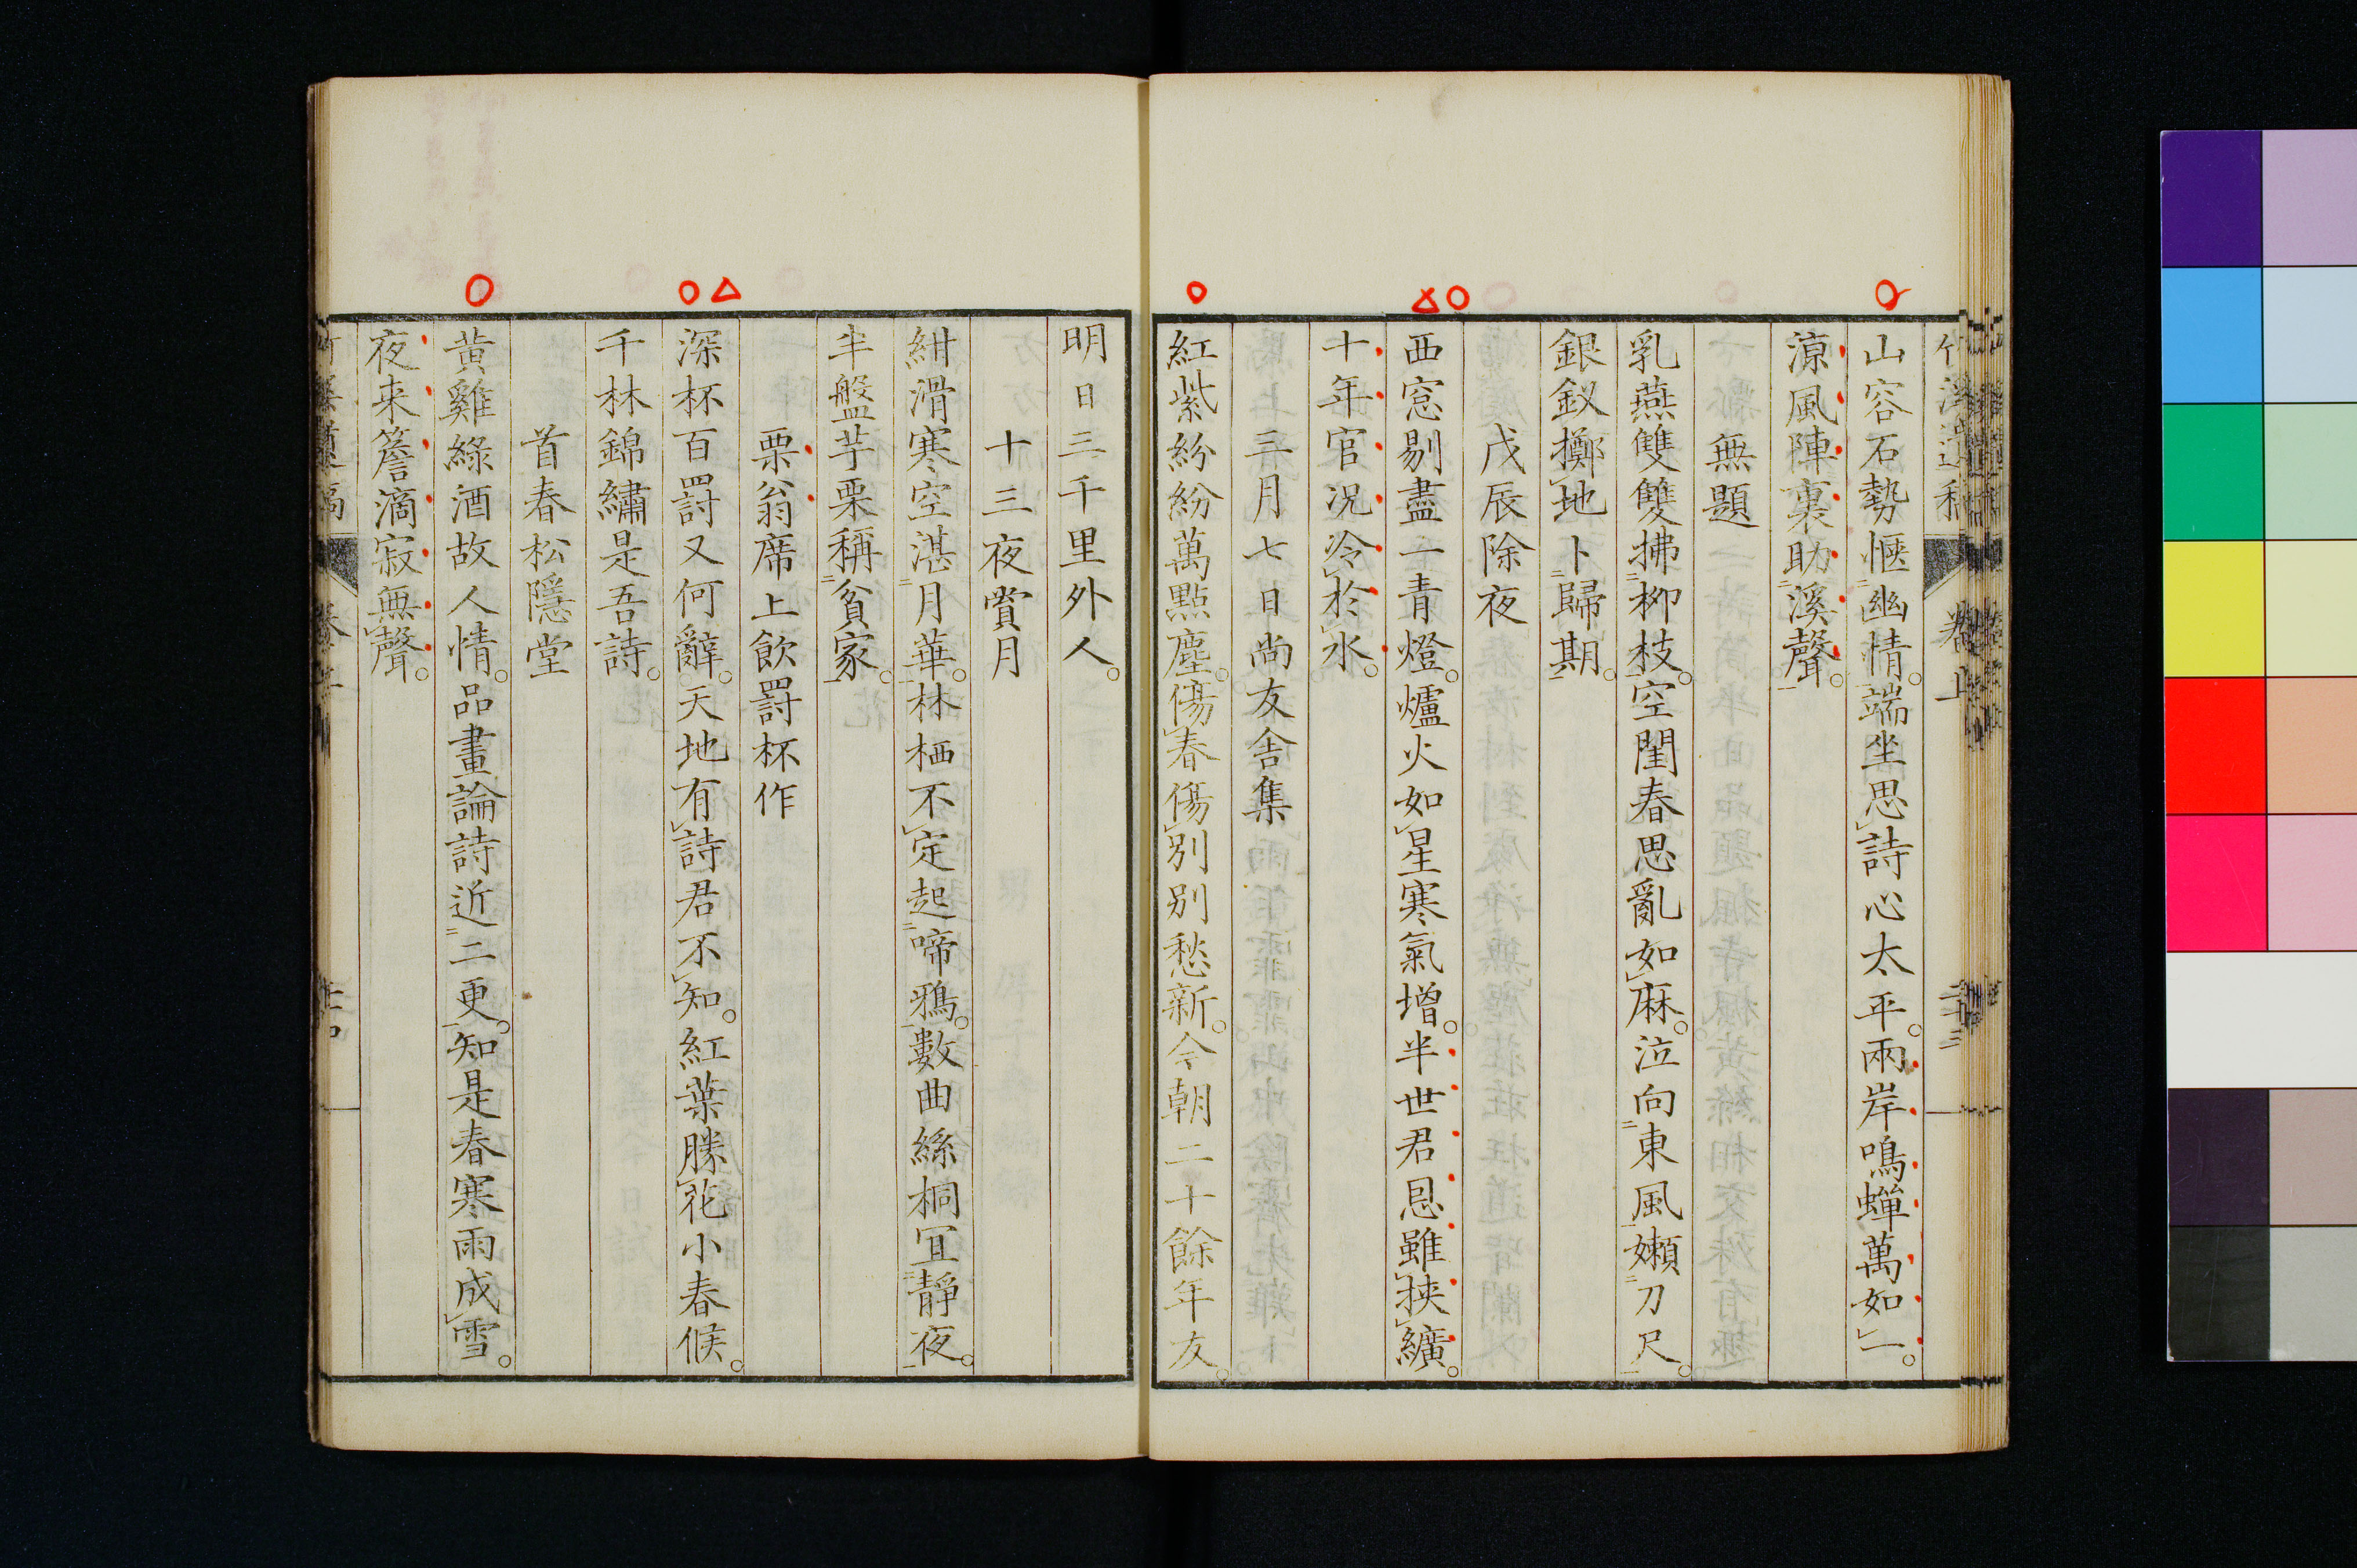 山容石勢愜幽情。端坐思詩心太平。兩岸鳴蟬萬如一。
涼風陣裏助溪聲。
無題
乳燕雙雙拂柳枝。空閨春思亂如麻。泣向東風嬾刀尺。
銀釵擲地卜歸期。
戊辰除夜
西窓剔盡一青燈。爐火如星寒氣增。半世君恩雖挾纊。
十年官況冷於氷。
三月七日尚友舍集
紅紫紛紛萬點塵。傷春傷別別愁新。今朝二十餘年友。
明日三千里外人。
十三夜賞月
紺滑寒空湛月華。林栖不定起啼鴉。數曲絲桐宜靜夜。
半盤芋栗稱貧家。
栗翁席上飲罰杯作
深杯百罰又何辭。天地有詩君不知。紅葉勝花小春候。
千林錦繡是吾詩。
首春松隱堂
黃雞綠酒故人情。品畫論詩近二更。知是春寒雨成雪。
夜来簷滴寂無聲。